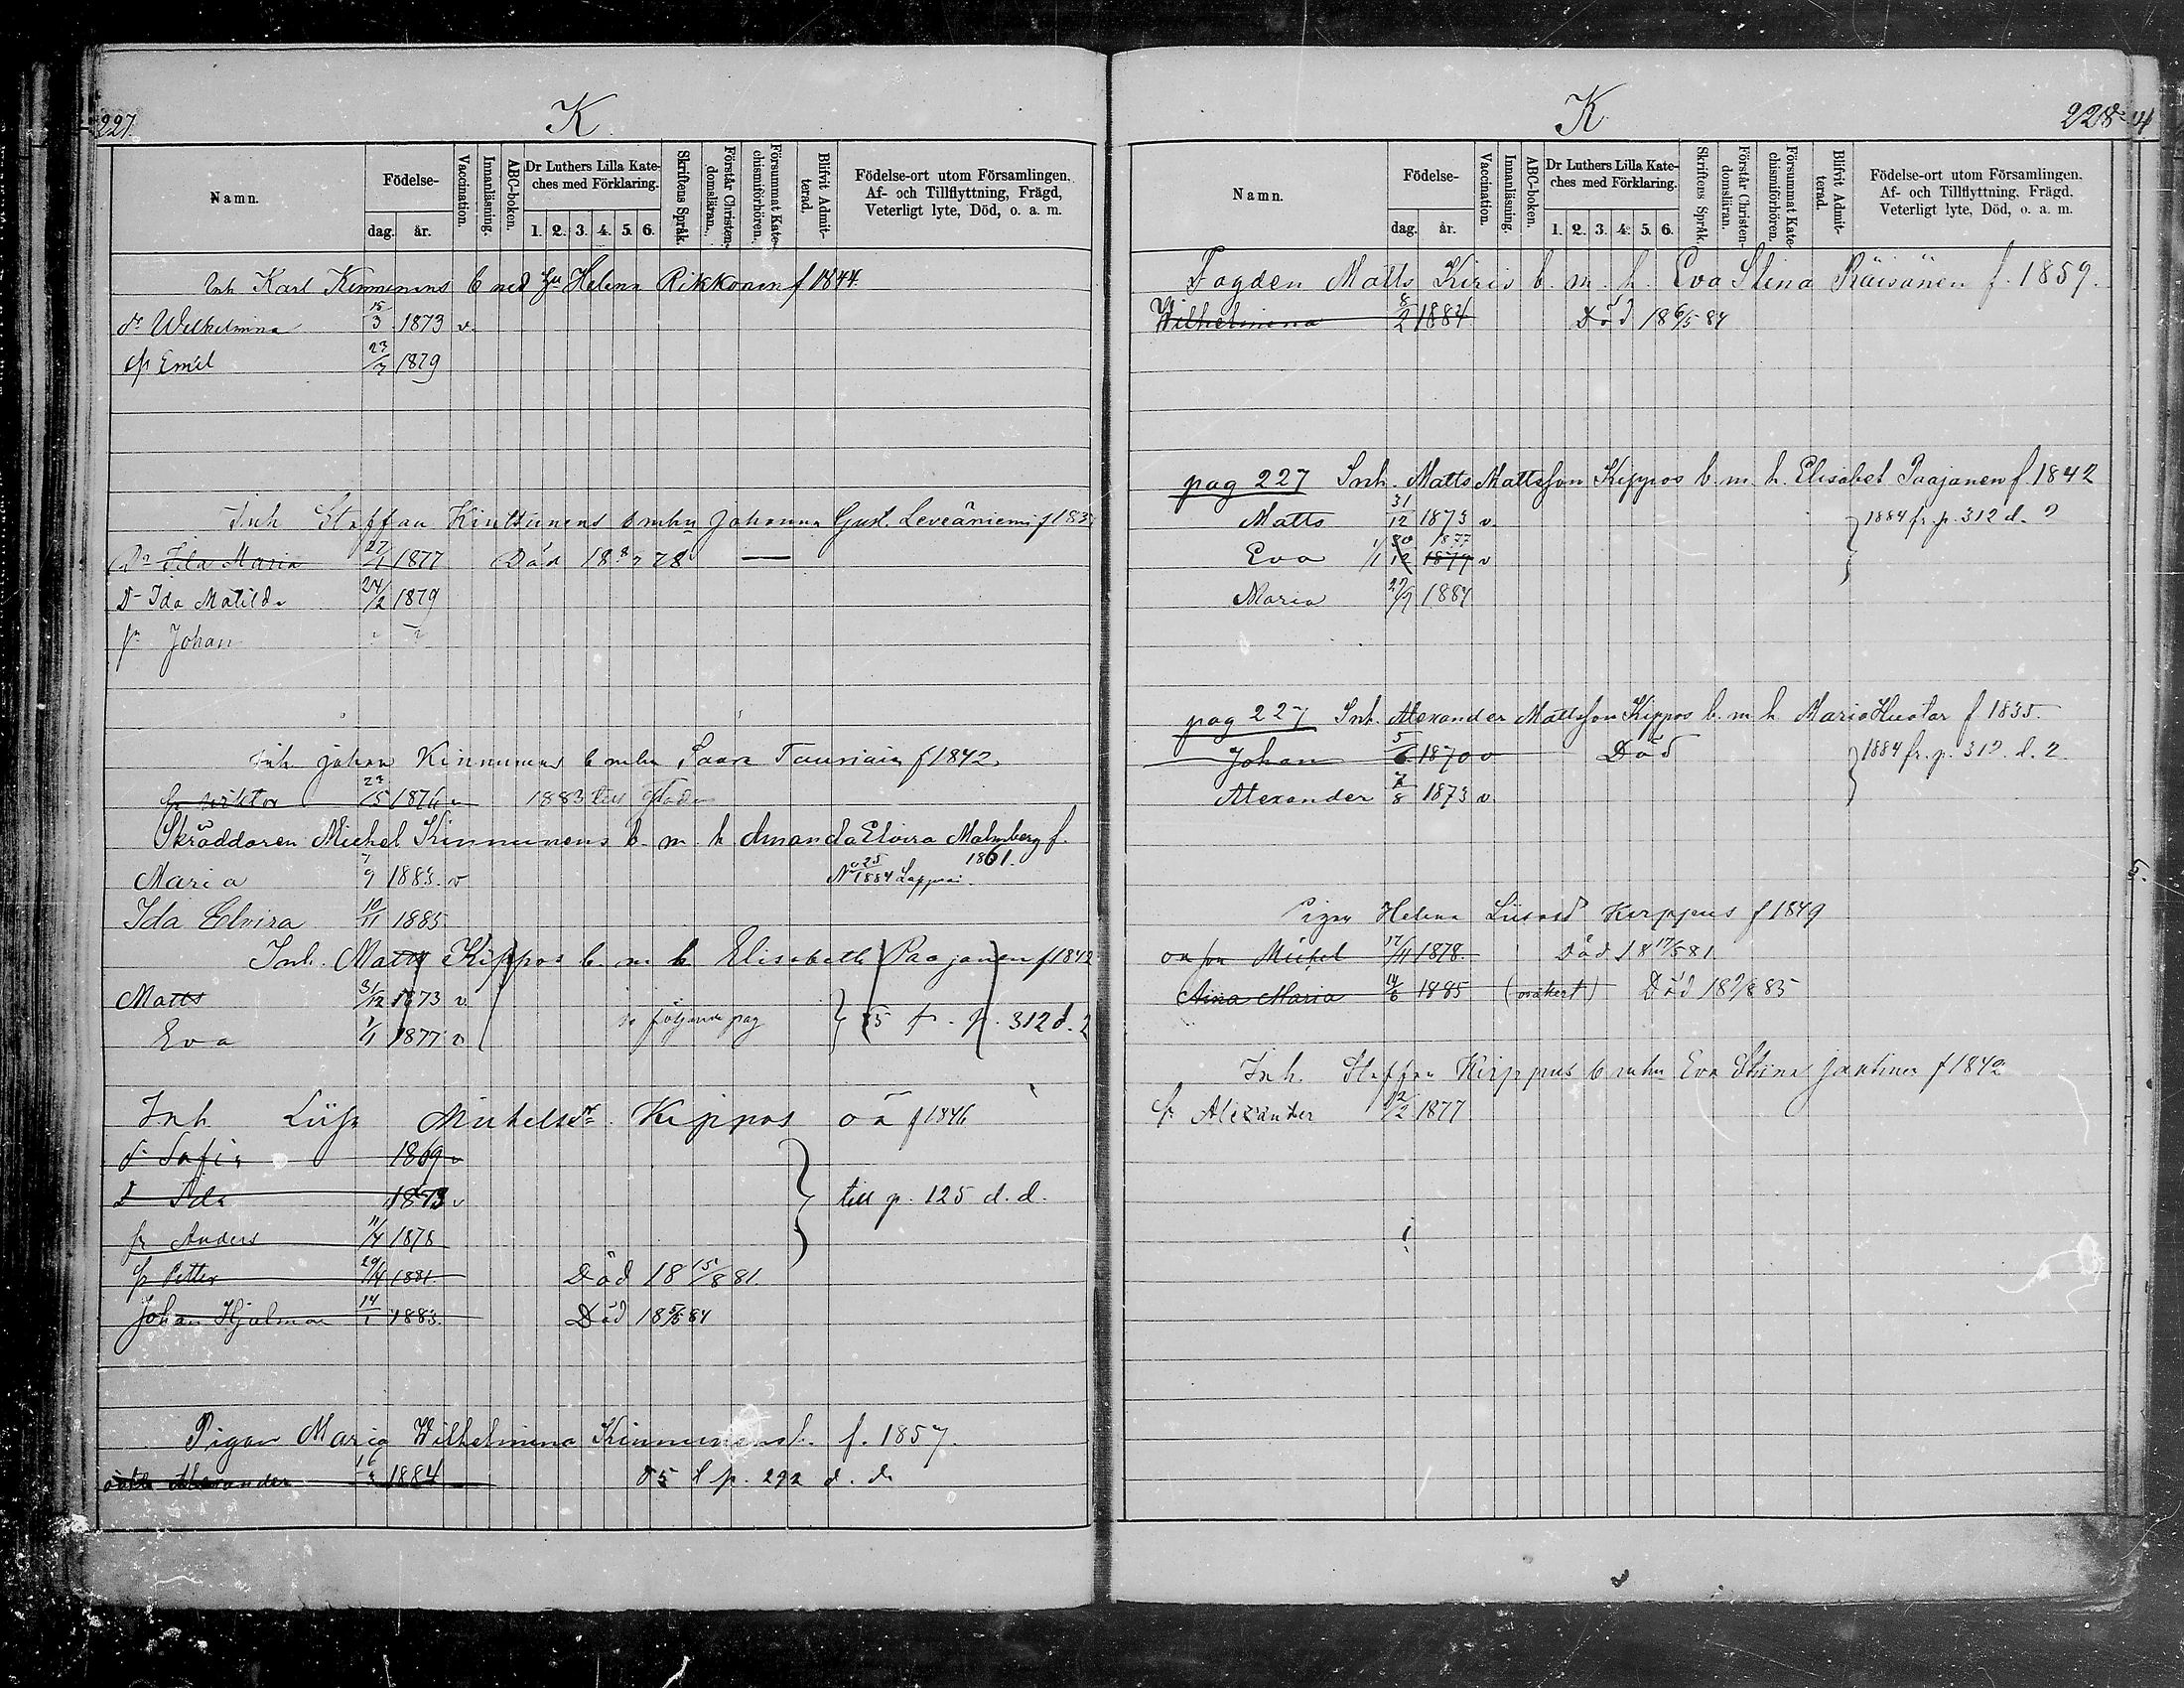 227.
K
Namn.
Födelse-
dag.
år.
Vaccination.
Innanläsning.
ABC-boken.
Dr Luthers Lilla Kate-
ches med Förklaring.
1. 2. 3. 4. 5. 6.
Skriftens Språk.
Förstår Christen-
domsläran.
Försummat Kate-
chismiförhören.
Blifvit Admit-
terad.
Födelse-ort utom Församlingen.
Af- och Tillflyttning, Frägd,
Veterligt lyte, Död, o. a. m.
Inh Karl Kinnunens b med hu Helena Rikkonen f 1844.
dr Wilhelmina 15/3 1873 v.
sn Emil 23/7 1879
Inh Staffan Kinttunens b m hu Johanna Gust. Leveäniemi f 183
Dr Ida Maria 27/1 1877 Död 18 8/7 78 —
Dr Ida Matilda 24/2 1879
sn Johan
Inh Johan Kinnunens b m hu Saara Tauriain f 1842.
sn Viktor 23/5 1876 v 1883 till
Skräddaren Michel Kinnunens b. m. h Amanda Elvira Malmberg f. 1861.
Maria 7/9 1883. v No 25 1884 Lappvesi
Ida Elvira 10/11 1885
Inh. Matts Kippos b. m. h Elisabeth Paajanen f 1842
Matts 31/12 1873 v.
Eva 1/1 1877 v se följande pag 85 fr. p. 312 d. 2
Inh. Liisa Michelsdr. Kippos oä f 1846
dr Sofia 1869 v
D Ida 1873 v till p. 125 d. d.
sn Anders 11/7 1878
sn Petter 29/4 1881 Död 18 15/8 81.
Johan Hjalmar 14/1 1883. Död 18 5/5 84
Pigan Maria Wilhelmina Kinnunens b. f. 1857.
oäkta Alexander 16/3 1884 85 t p. 292 d. d.
K
228
Namn.
Födelse-
dag.
år.
Vaccination.
Innanläsning.
ABC-boken.
Dr Luthers Lilla Kate-
ches med Förklaring.
1. 2. 3. 4. 5. 6.
Skriftens Språk.
Förstår Christen-
domsläran.
Försummat Kate-
chismiförhören.
Blifvit Admit-
terad.
Födelse-ort utom Församlingen.
Af- och Tillflyttning, Frägd.
Veterligt lyte, Död, o. a. m.
Fogden Matts Kiris b. m. h. Eva Stina Räisänen f. 1859.
Wilhelmina 8/2 1884 Död 18 6/5 84
pag 227 Inh. Matts Mattsson Kippos b. m. h. Elisabet Paajanen f. 1842
Matts 31/12 1873 v. 1884 fr. p. 312 d. 2
Eva 1/1 30/12 1877 1879 v
Maria 27/9 1884
pag 227 Inh. Alexander Mattsson Kippos b. m. h Maria Huotar f 1835.
Johan 5/6 1870 v Död 1884 fr. p. 312 d. 2.
Alexander 7/8 1873 v.
Pigan Helena Liisasd Kirppus f 1849
oä sn Michel 17/11 1878. Död 18 17/5 81.
Aina Maria 14/6 1885 (osäkert) Död 18 9/8 85
Inh. Staffan Kirppus b m hu Eva Stina Jantinen f 1842
sn Alexander 12/2 1877
5.